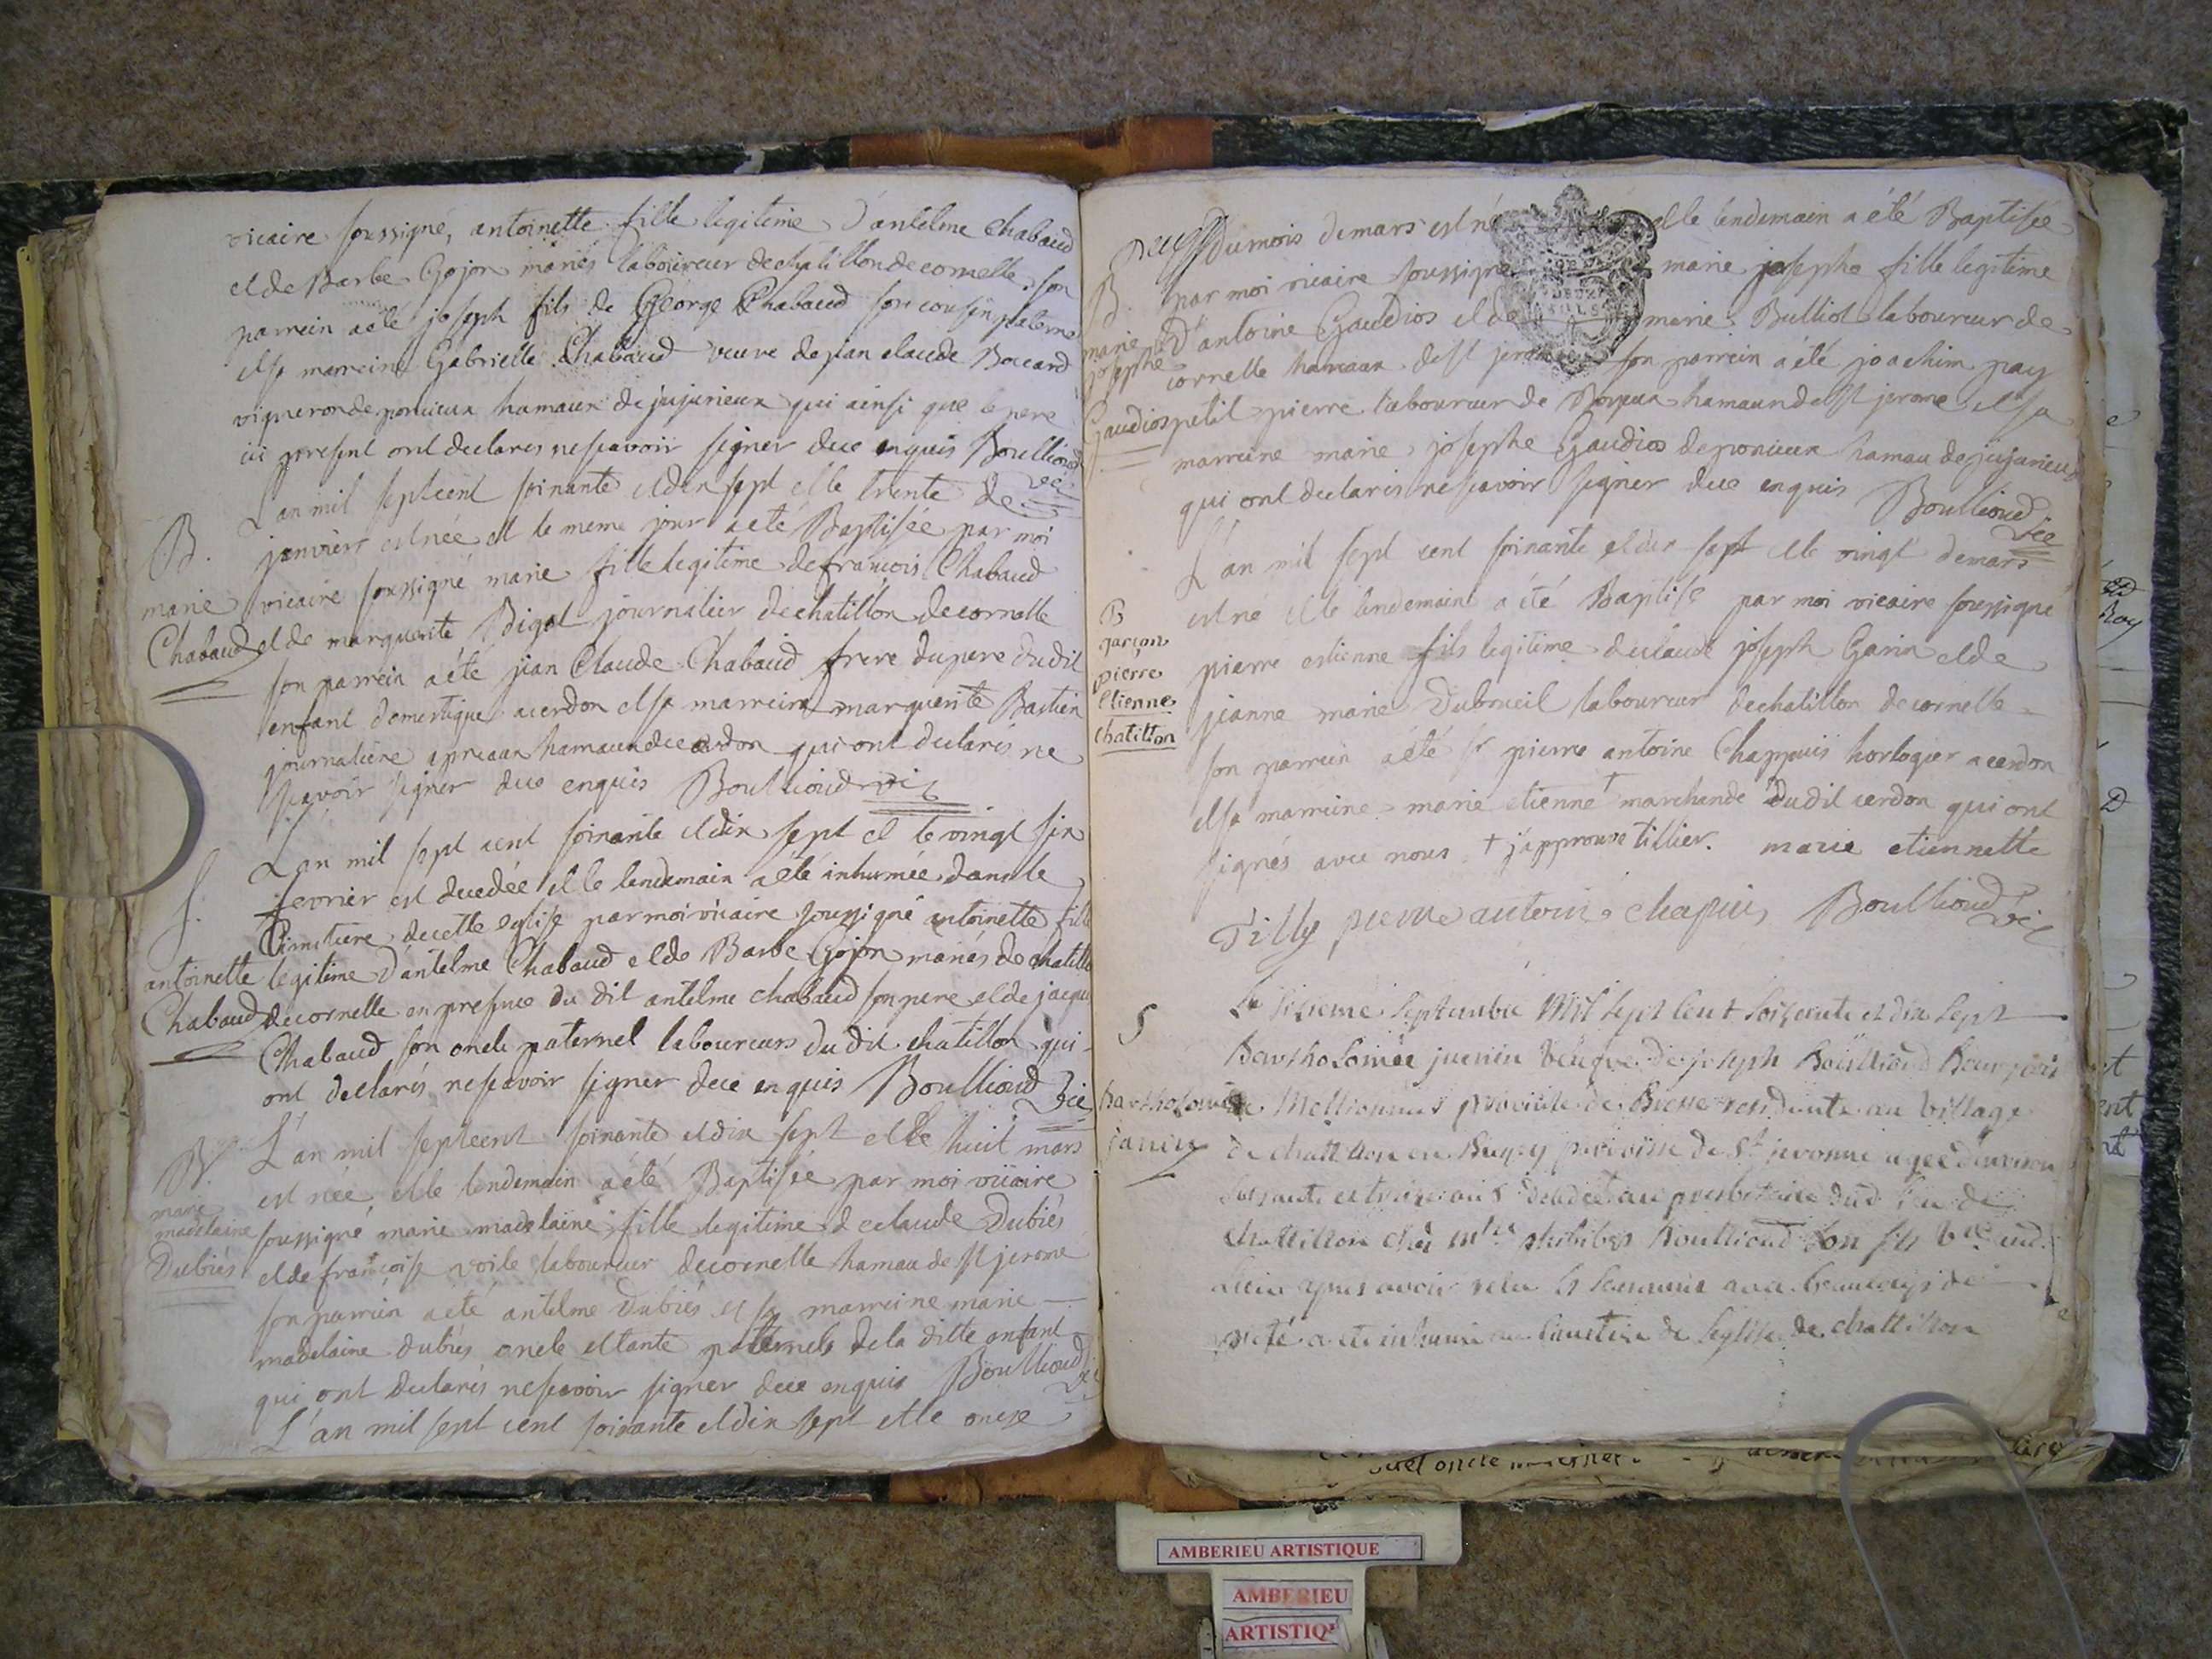 vicaire soussigné, antoinette fille legitime d'antelme Chabaud
et de Barbe Gojon mariés laboureur de chatillon de cornelle, son
parrein a été joseph fils de George Chabaud son cousin paternel
et sa marreine Gabrielle Chabaud veuve de jean claude Boccard
vigneron de poncieux hamaux de jujurieux qui ainsi que le pere
ici present ont declarés ne scavoir signer de ce enquis Boullioud
vic
L'an mil septcent soixante et dix sept et le trente de
B.
janvier est née et le meme jour a été Baptisée par moi
marie vicaire soussigné marie fille legitime de francois Chabaud
Chabaud et de marguerite Bigot journalier de chatillon de cornelle
son parrein a été jean Claude Chabaud frere du pere dudit
enfant domestique a cerdon et sa marreine marguerite Bastien
journaliere a preaux hamaux de cerdon qui ont declarés ne
scavoir signer de ce enquis Boullioud vic
L'an mil sept cent soixante et dix sept et le vingt six
S.
fevrier est decedée et le lendemain a été inhumée dans le
Cimetiere de cette eglise par moi vicaire soussigné antoinette fille
antoinette legitime d'antelme Chabaud et de Barbe Gojon mariés de chatillon
Chabaud de cornelle en presence du dit antelme chabaud son pere et de jacque
Chabaud son oncle paternel laboureurs du dit chatillon qui
ont declarés ne scavoir signer de ce enquis Boullioud vic
L'an mil septcent soixante et dix sept et le huit mars
B.
est née et le lendemain a été Baptisée par moi vicaire
marie madelaine soussigné marie madelaine fille legitime de claude Dubiés
Dubiés et de francoise voile laboureur de cornelle hamau de st jerome
son parrein a été antelme Dubiés et sa marreine marie
madelaine dubiés oncle et tante paternels de la ditte enfant
qui ont declarés ne scavoir signer de ce enquis Boullioud vic
L'an mil sept cent soixante et dix sept et le onze
du mois de mars est né et le lendemain a été Baptisée
B. par moi vicaire soussigné marie josephe fille legitime
marie d'antoine Gaudios et de marie Bulliot laboureur de
josephe cornelle hamaux de st jerome son parrein a été joachim pay
Gaudios petit pierre laboureur de hamaux de st jerome et sa
marreine marie josephe Gaudios de poncieux hamau de jujurieux
qui ont declarés ne scavoir signer de ce enquis Boullioud
vic
L'an mil sept cent soixante et dix sept et le vingt de mars
B est né et le lendemain a été Baptisé par moi vicaire soussigné
garçon
pierre pierre estienne fils legitime de claude joseph Garin et de
Etienne jeanne marie Dubreuil laboureur de chatillon de cornelle
chatillon
son parrein a été sr pierre antoine Chappuis horloger a cerdon
et sa marreine marie etienne + marchande dudit cerdon qui ont
signés avec nous + j'approuve tillier. marie etiennette
Tilly pierre antoine chapuis Boullioud vic
Le sixieme septembre Mil sept cent soixante et dix sept
S
Bartholomée juenin veuve de joseph Boullioud Bourgeois
bartholomée de Mellionnas province de Bresse residente au village
janin de chatillon en Bugey parroisse de St jeronne agée d'environ
soixante et treize ans decedée au presbitaire dud lieu de
chattillon chés mre philibert Boullioud son fils vic aud.
lieu apres avoir recu les sacremens avec beaucoup de
pieté a été inhumée au Cimetiere de leglise de chattillon
AMBERIEU ARTISTIQUE
AMBERIEU
ARTISTIQ